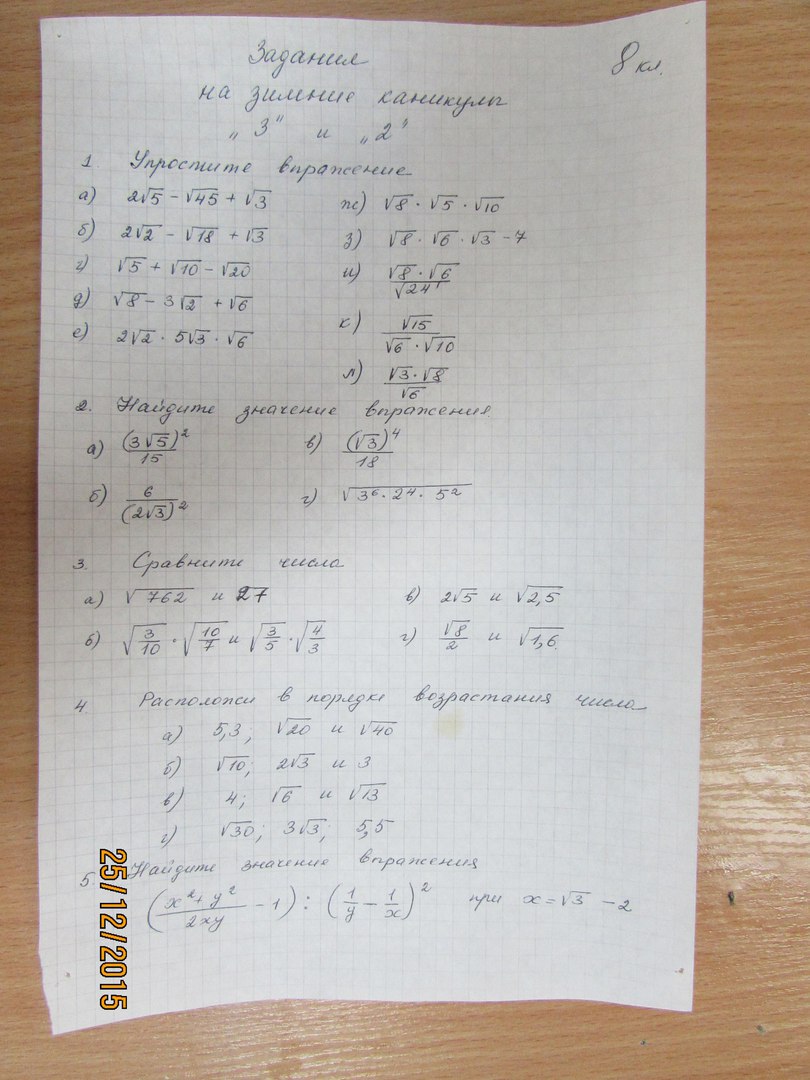 Задания 8 кл.
на зимние каникулы
„3" и „2"
1. Упростите выражение
а) 2√5 - √45 + √3 ж) √8 · √5 · √10
б) 2√2 - √18 + √3 з) √8 · √6 · √3 - 7
г) √5 + √10 - √20 и) (√8 · √6)/√24
д) √8 - 3√2 + √6 к) √15/(√6 · √10)
е) 2√2 · 5√3 · √6 л) (√3 · √8)/√6
2. Найдите значение выражения
а) (3√5)²/15 в) (√3)⁴/18
б) 6/(2√3)² г) √(3⁶ · 2⁴ · 5²)
3. Сравните числа
а) √762 и 27 в) 2√5 и √2,5
б) √(3/10) · √(10/7) и √(3/5) · √(4/3) г) √8/2 и √1,6
4. Расположи в порядке возрастания числа
а) 5,3, √20 и √40
б) √10; 2√3 и 3
в) 4; √6 и √13
г) √30; 3√3; 5,5
5. Найдите значение выражения
((x² + y²)/2xy - 1) : (1/y - 1/x)² при x = √3 - 2
25/12/2015